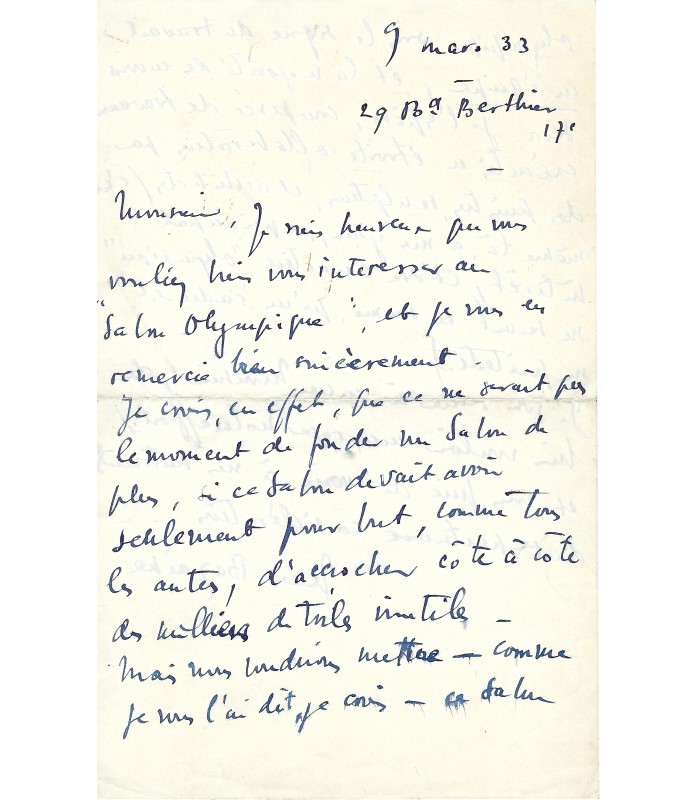 9 mars 33
29 Bd Berthier
17e
Monsieur, Je suis heureux que vous
vouliez bien vous intéresser au
"Salon Olympique", et je vous en
remercie bien sincèrement.
Je crois, en effet, que ce ne serait pas
le moment de fonder un Salon de
plus, si ce Salon devait avoir
seulement pour but, comme tous
les autres, d'accrocher côte à côte
des milliers de toiles inutiles –
Mais nous voudrions mettre – comme
je vous l'ai dit, je crois – ce Salon